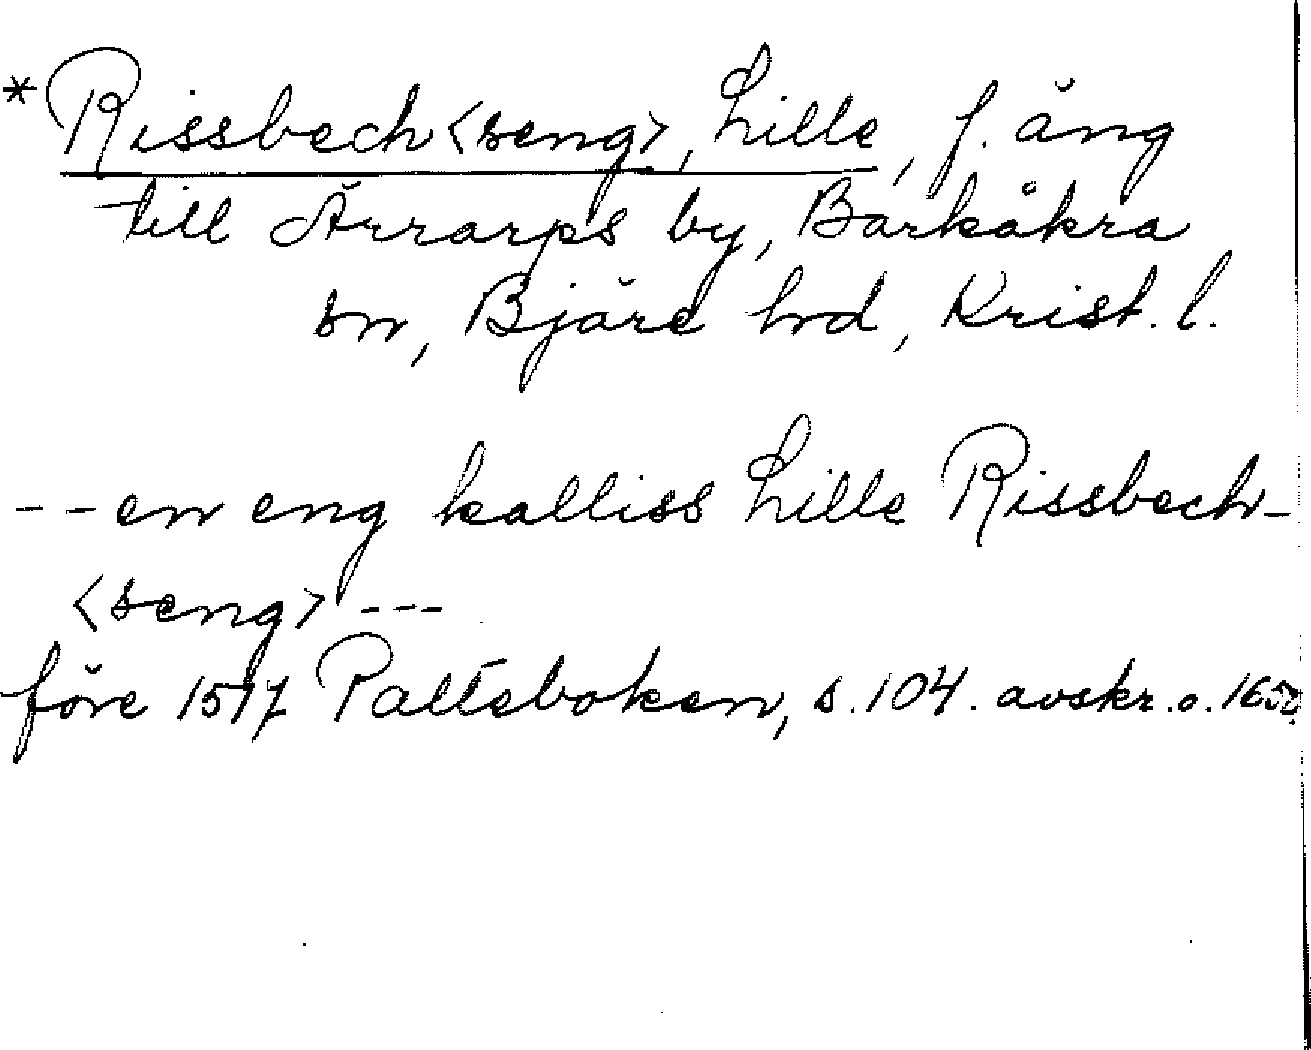 *Rissbech<seng>, Lille, f. äng
till Ärrarps by, Barkåkra
sn, Bjäre hd, Krist. l.
--en eng kalliss Lille Rissbech-
<seng> ---
före 1517 Palteboken, s. 104. avskr. o. 1650.